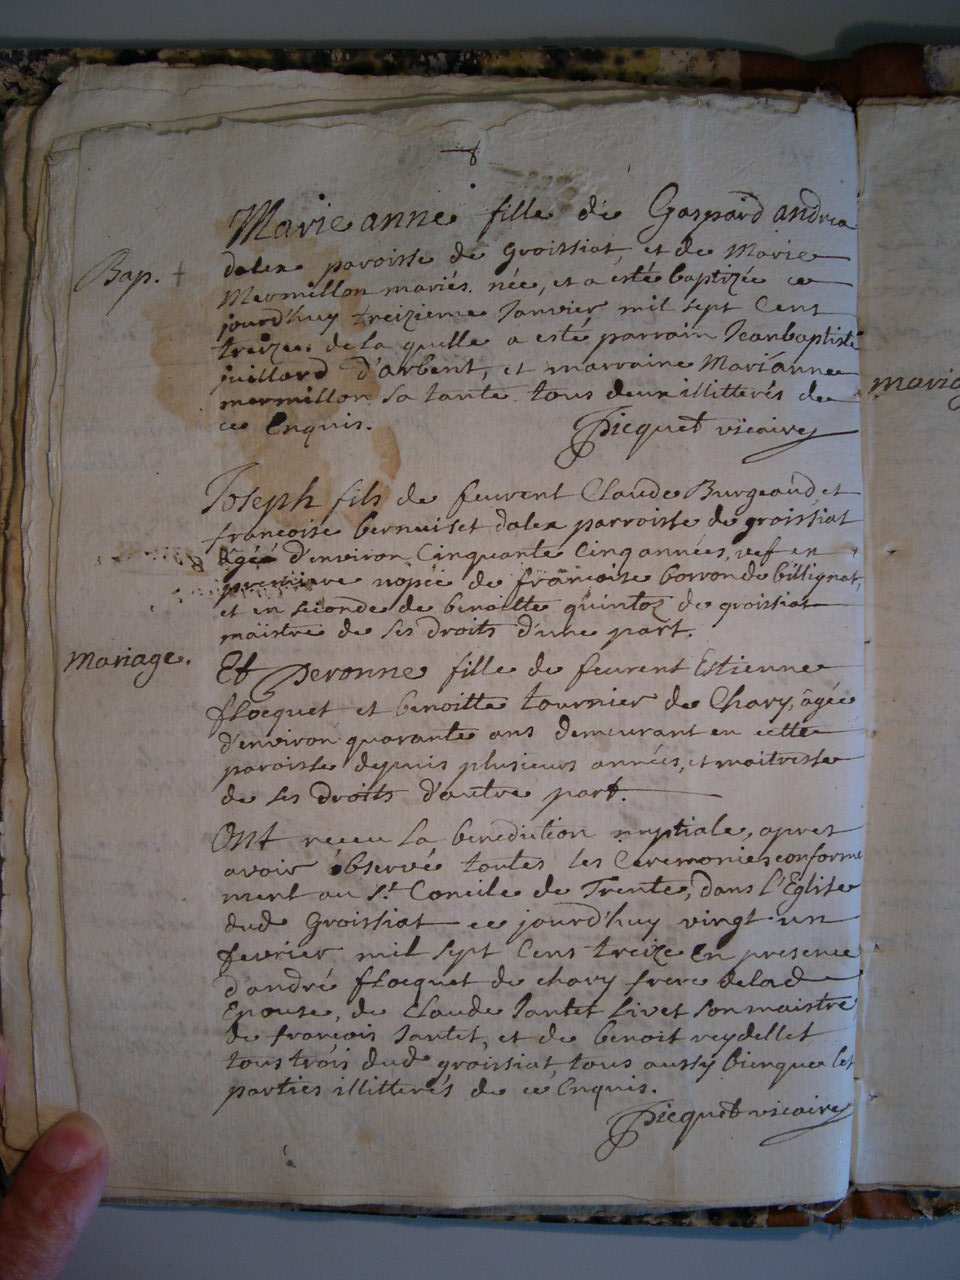 Marie anne fille de Gaspard andrea
Bap. +
dalex paroisse de Groissiat, et de Marie
Mermillon mariés. née, et a esté baptizée ce
jourd'huy treizieme Janvier mil sept Cens
treize. de la quelle a esté parrain Jeanbaptiste
juillard d'arbent, et marraine Marianne
mermillon sa tante tous deux illitterés de
ce Enquis. Picquet vicaire
Joseph fils de feurent Claude Burgeaud, et
françoise bernuiset dalex parroisse de groissiat
âgéé d'environ Cinquante Cinq années, vef en
premiere nopce de françoise borron de billignat,
et en seconde de benoitte quintoz de groissiat
maistre de ses droits d'une part.
Mariage.
Et Peronne fille de feurent Estienne
flocquet et benoitte tournier de Chary, âgée
d'environ quarante ans demeurant en cette
paroisse depuis plusieurs annéés, et maitresse
de ses droits d'autre part.
Ont receu la benediction nuptiale, apres
avoir observé toutes les Ceremonies conforme
ment au St. Concile de Trente, dans l'Eglise
dud Groissiat ce jourd'huy vingt un
fevrier mil sept Cens treize en presence
d'andré flocquet de chary frere delad
Epouse, de Claude Jantet Livet son maistre
de françois Jantet, et de benoit reydellet
tous trois dud groissiat, tous aussy bienque les
parties illitterés de ce Enquis.
Picquet vicaire